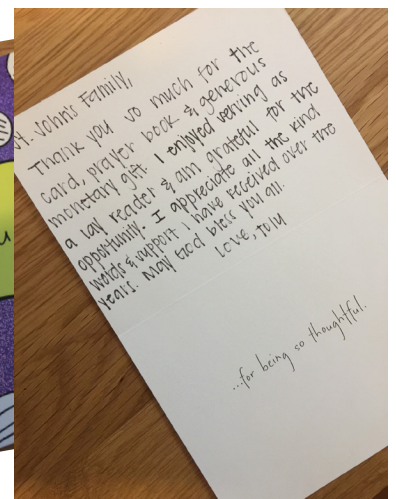 St. John's Family,
Thank you so much for the
card, prayer book & generous
monetary gift. I enjoyed serving as
a lay reader & am grateful for the
opportunity. I appreciate all the kind
words & support I have received over the
years. May God bless you all.
Love, Toly
...for being so thoughtful.